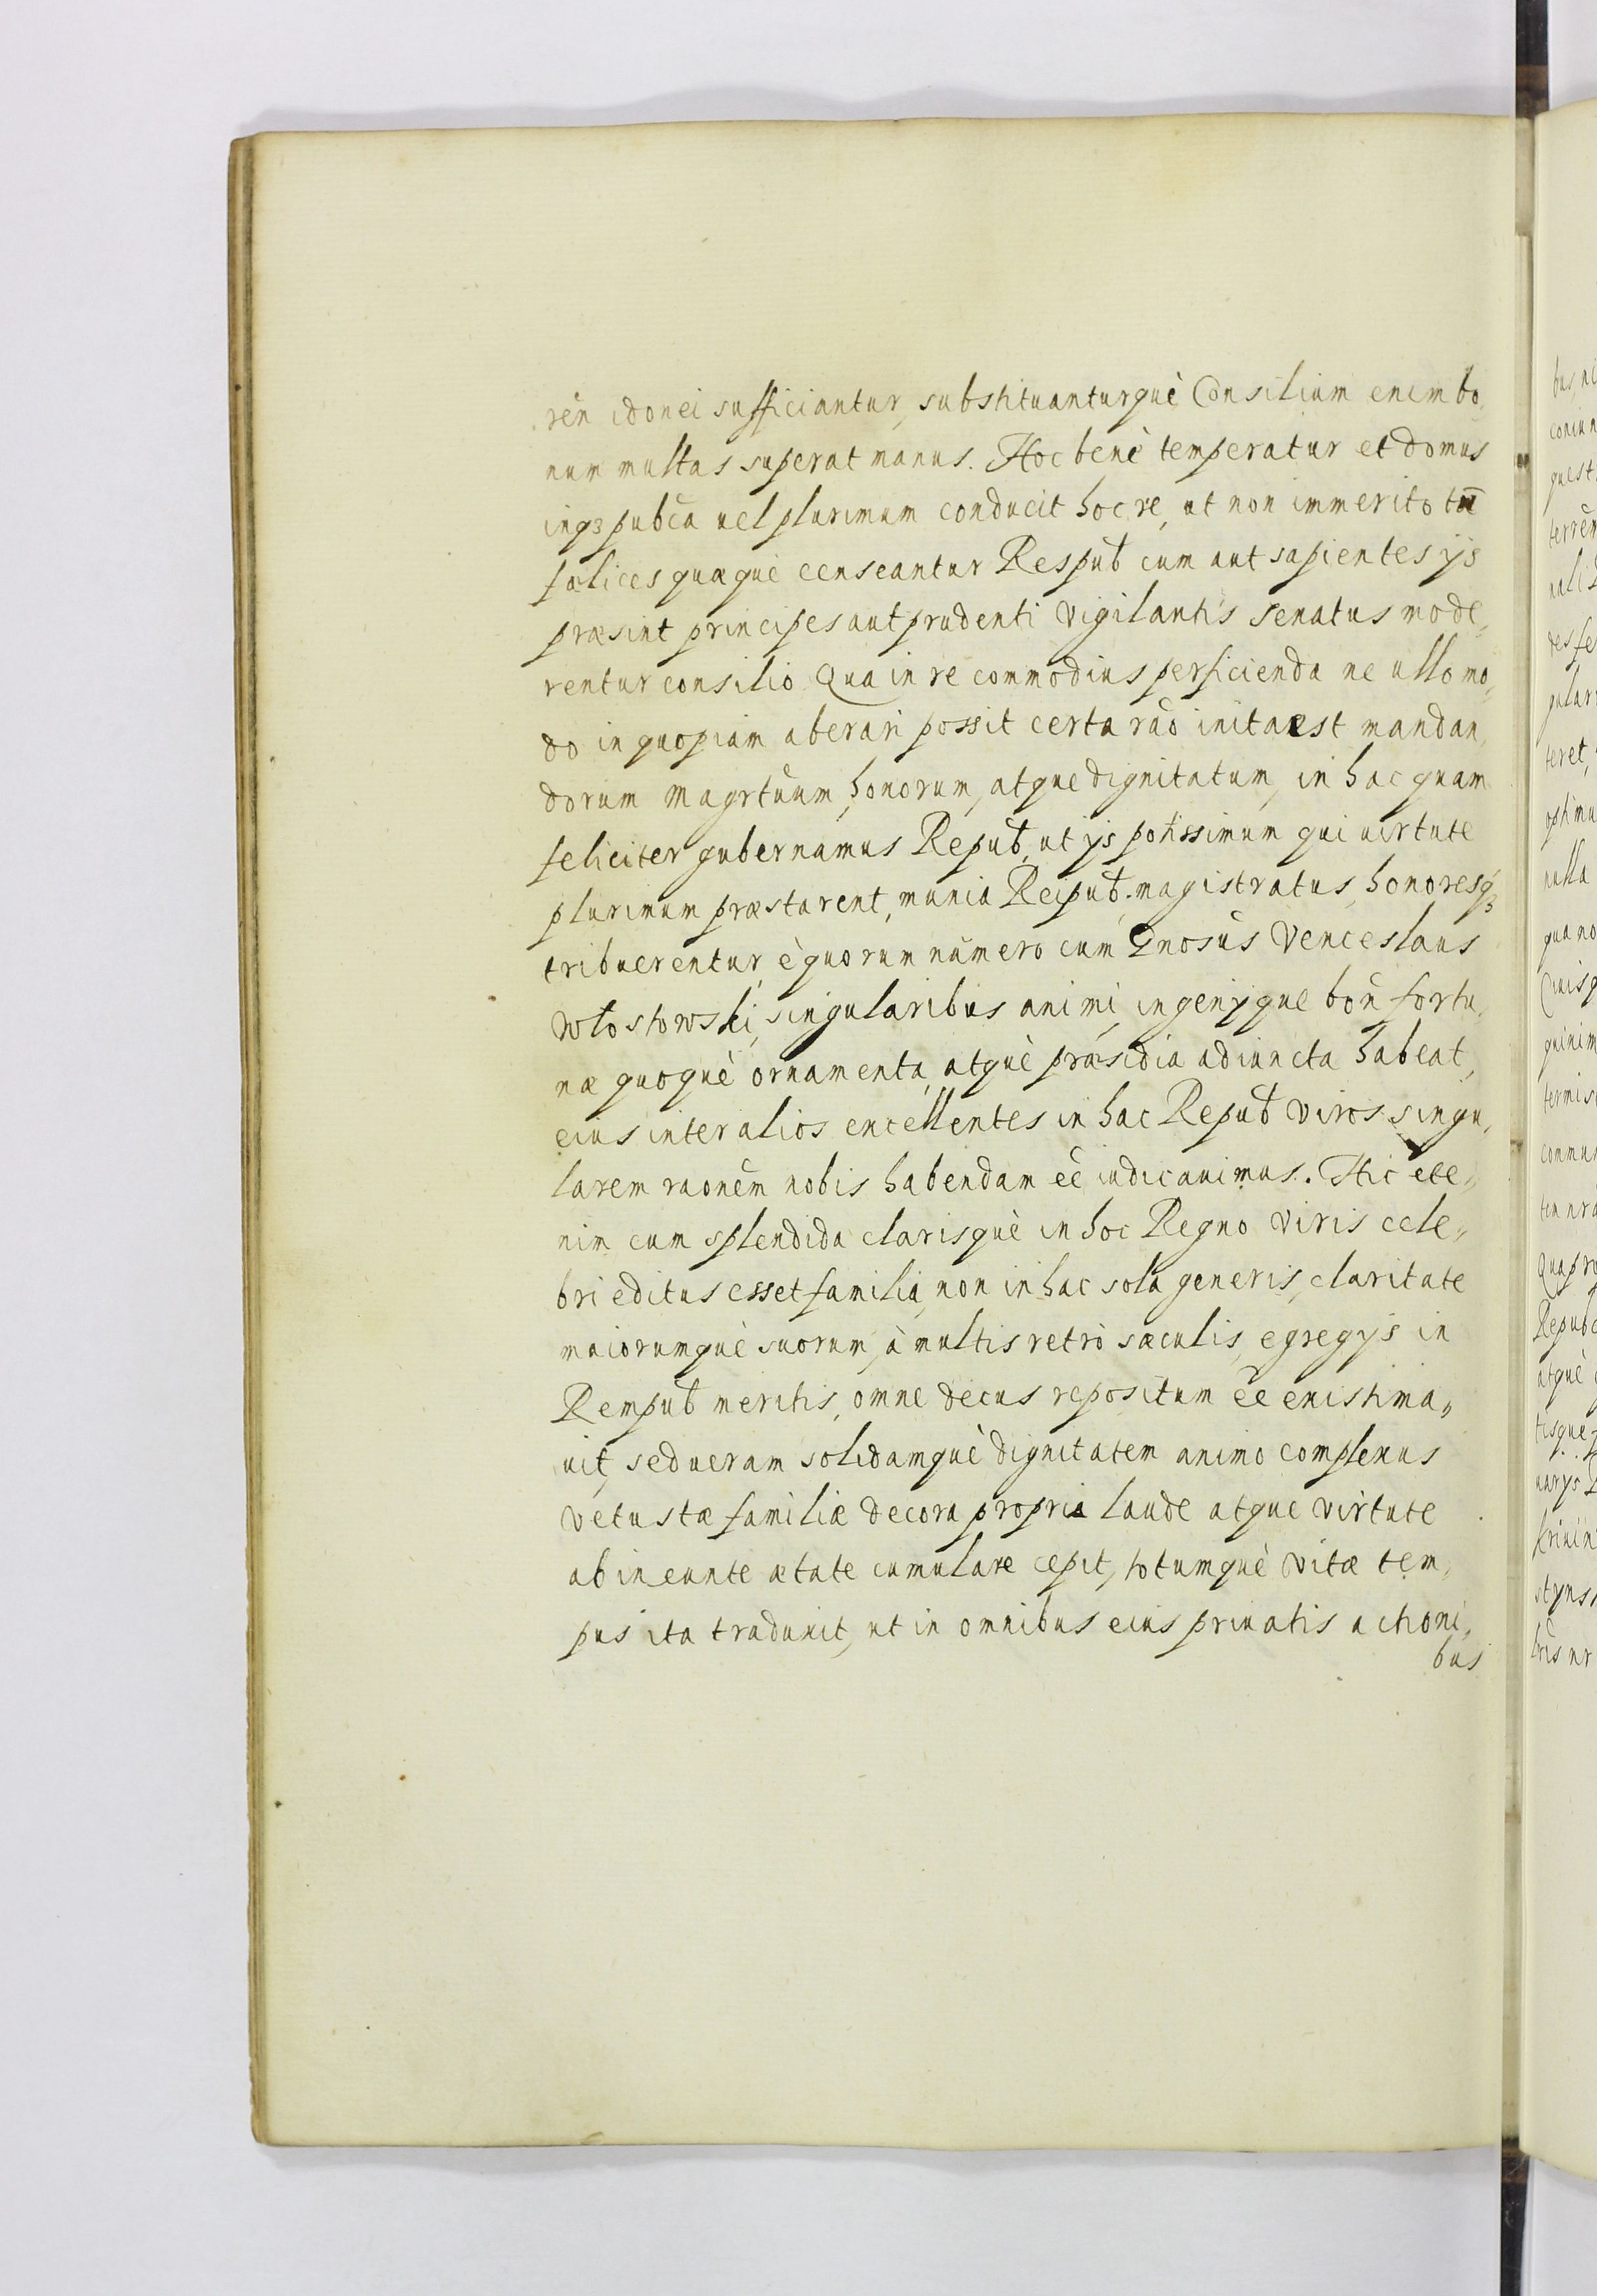 ren idonei sufficiantur, substituanturquè Consilium enim bo,
num multas superat manus. Hoc benè temperatur et domus
inq3 pubca uel plurimum conducit hoc re, ut non immerito tu
fœlices quæquè censeantur Respub cum aut sapientes ijs
præsint principes aut prudenti Vigilantis Senatus mode,,
rentur consilio Qua in re commodius perficienda ne ullo mo,
do in quopiam aberari possit certa rao inita est mandan,
dorum Magrtuum, honorum, atque dignitatum, in hac quam
feliciter gubernamus Repub, ut ijs potissimum qui uirtute
plurimum præstarent, munia Reipub. magistratus, honoresq3
tribuerentur, è quorum numero cum Gnosus Venceslaus
Włostowski, singularibus animi, ingenijque bon fortu,
næ quoquè ornamenta, atquè præsidia adiuncta habeat,
eius inter alios excellentes in hac Repub Viros singu,
larem raonem nobis habendam ee iudicauimus. Hic ete,,
nim cum splendida clarisquè in hoc Regno Viris cele,,
bri editus esset familia, non in hac sola generis, claritate
maiorumquè suorum, à multis retrò sæculis, egregijs in
Rempub meritis, omne decus repositum ee existima,,
uit, sed ueram solidamquè dignitatem animo complexus
Vetustæ familiæ decora propria laude atque Virtute
ab ineunte ætate cumulare cepit, totumquè Vitæ tem,
pus ita traduxit, ut in omnibus eius priuatis actioni,
bus